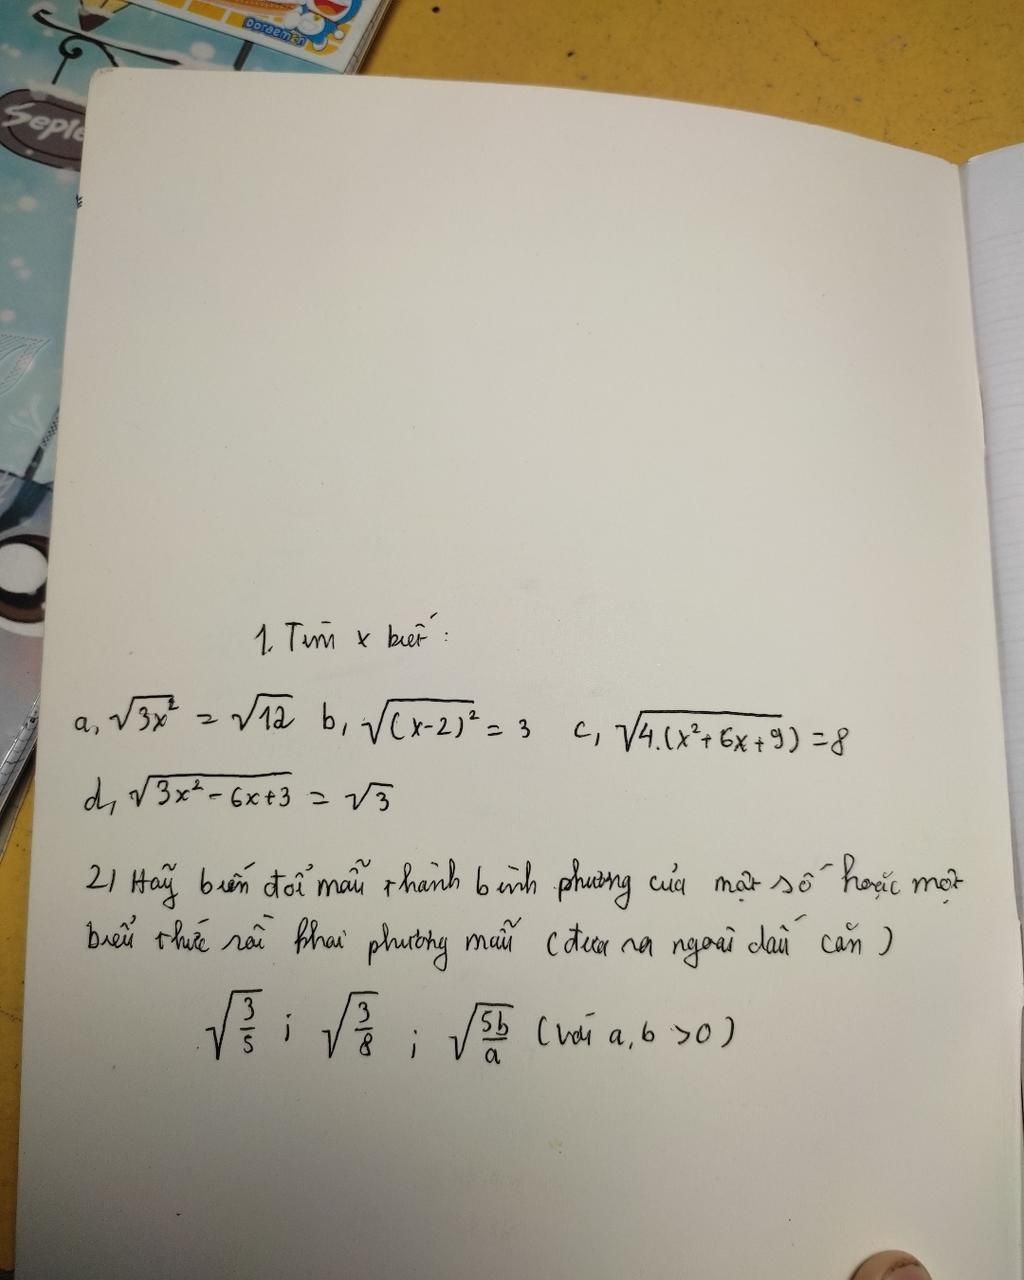 Doraemon
Septe
1. Tìm x biết:
a, √3x² = √12 b, √(x-2)² = 3 c, √4.(x²+6x+9) = 8
d, √3x²-6x+3 = √3
2) Hãy biến đổi mẫu thành bình phương của một số hoặc một
biểu thức rồi khai phương mẫu (đưa ra ngoài dấu căn)
√3/5 ; √3/8 ; √5b/a (với a, b >0)